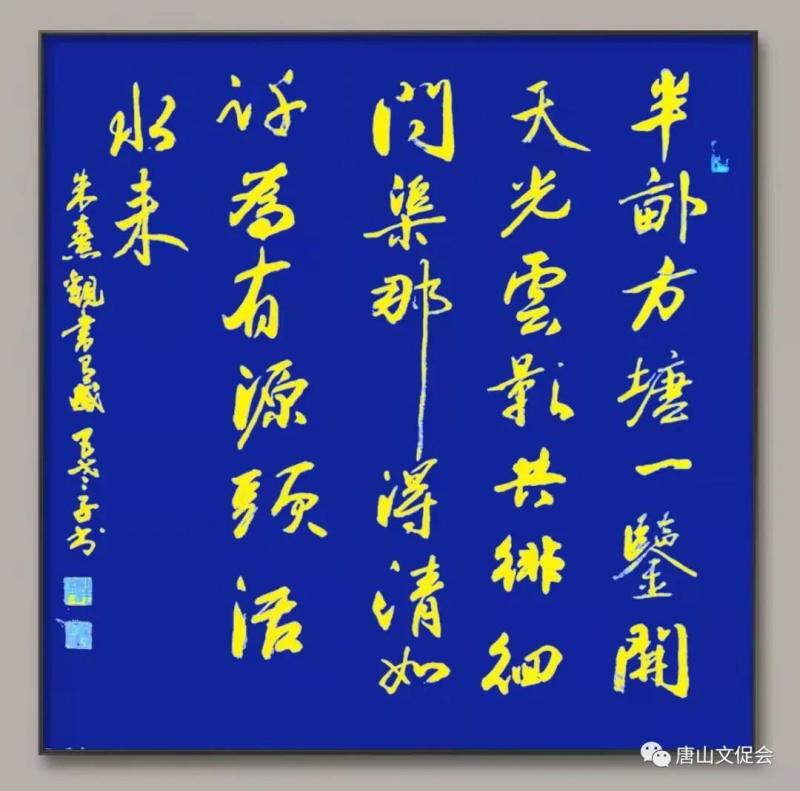 半畝方塘一鑒開
天光雲影共徘徊
問渠那得清如
許為有源頭活
水来
朱熹觀書有感
唐山文促会